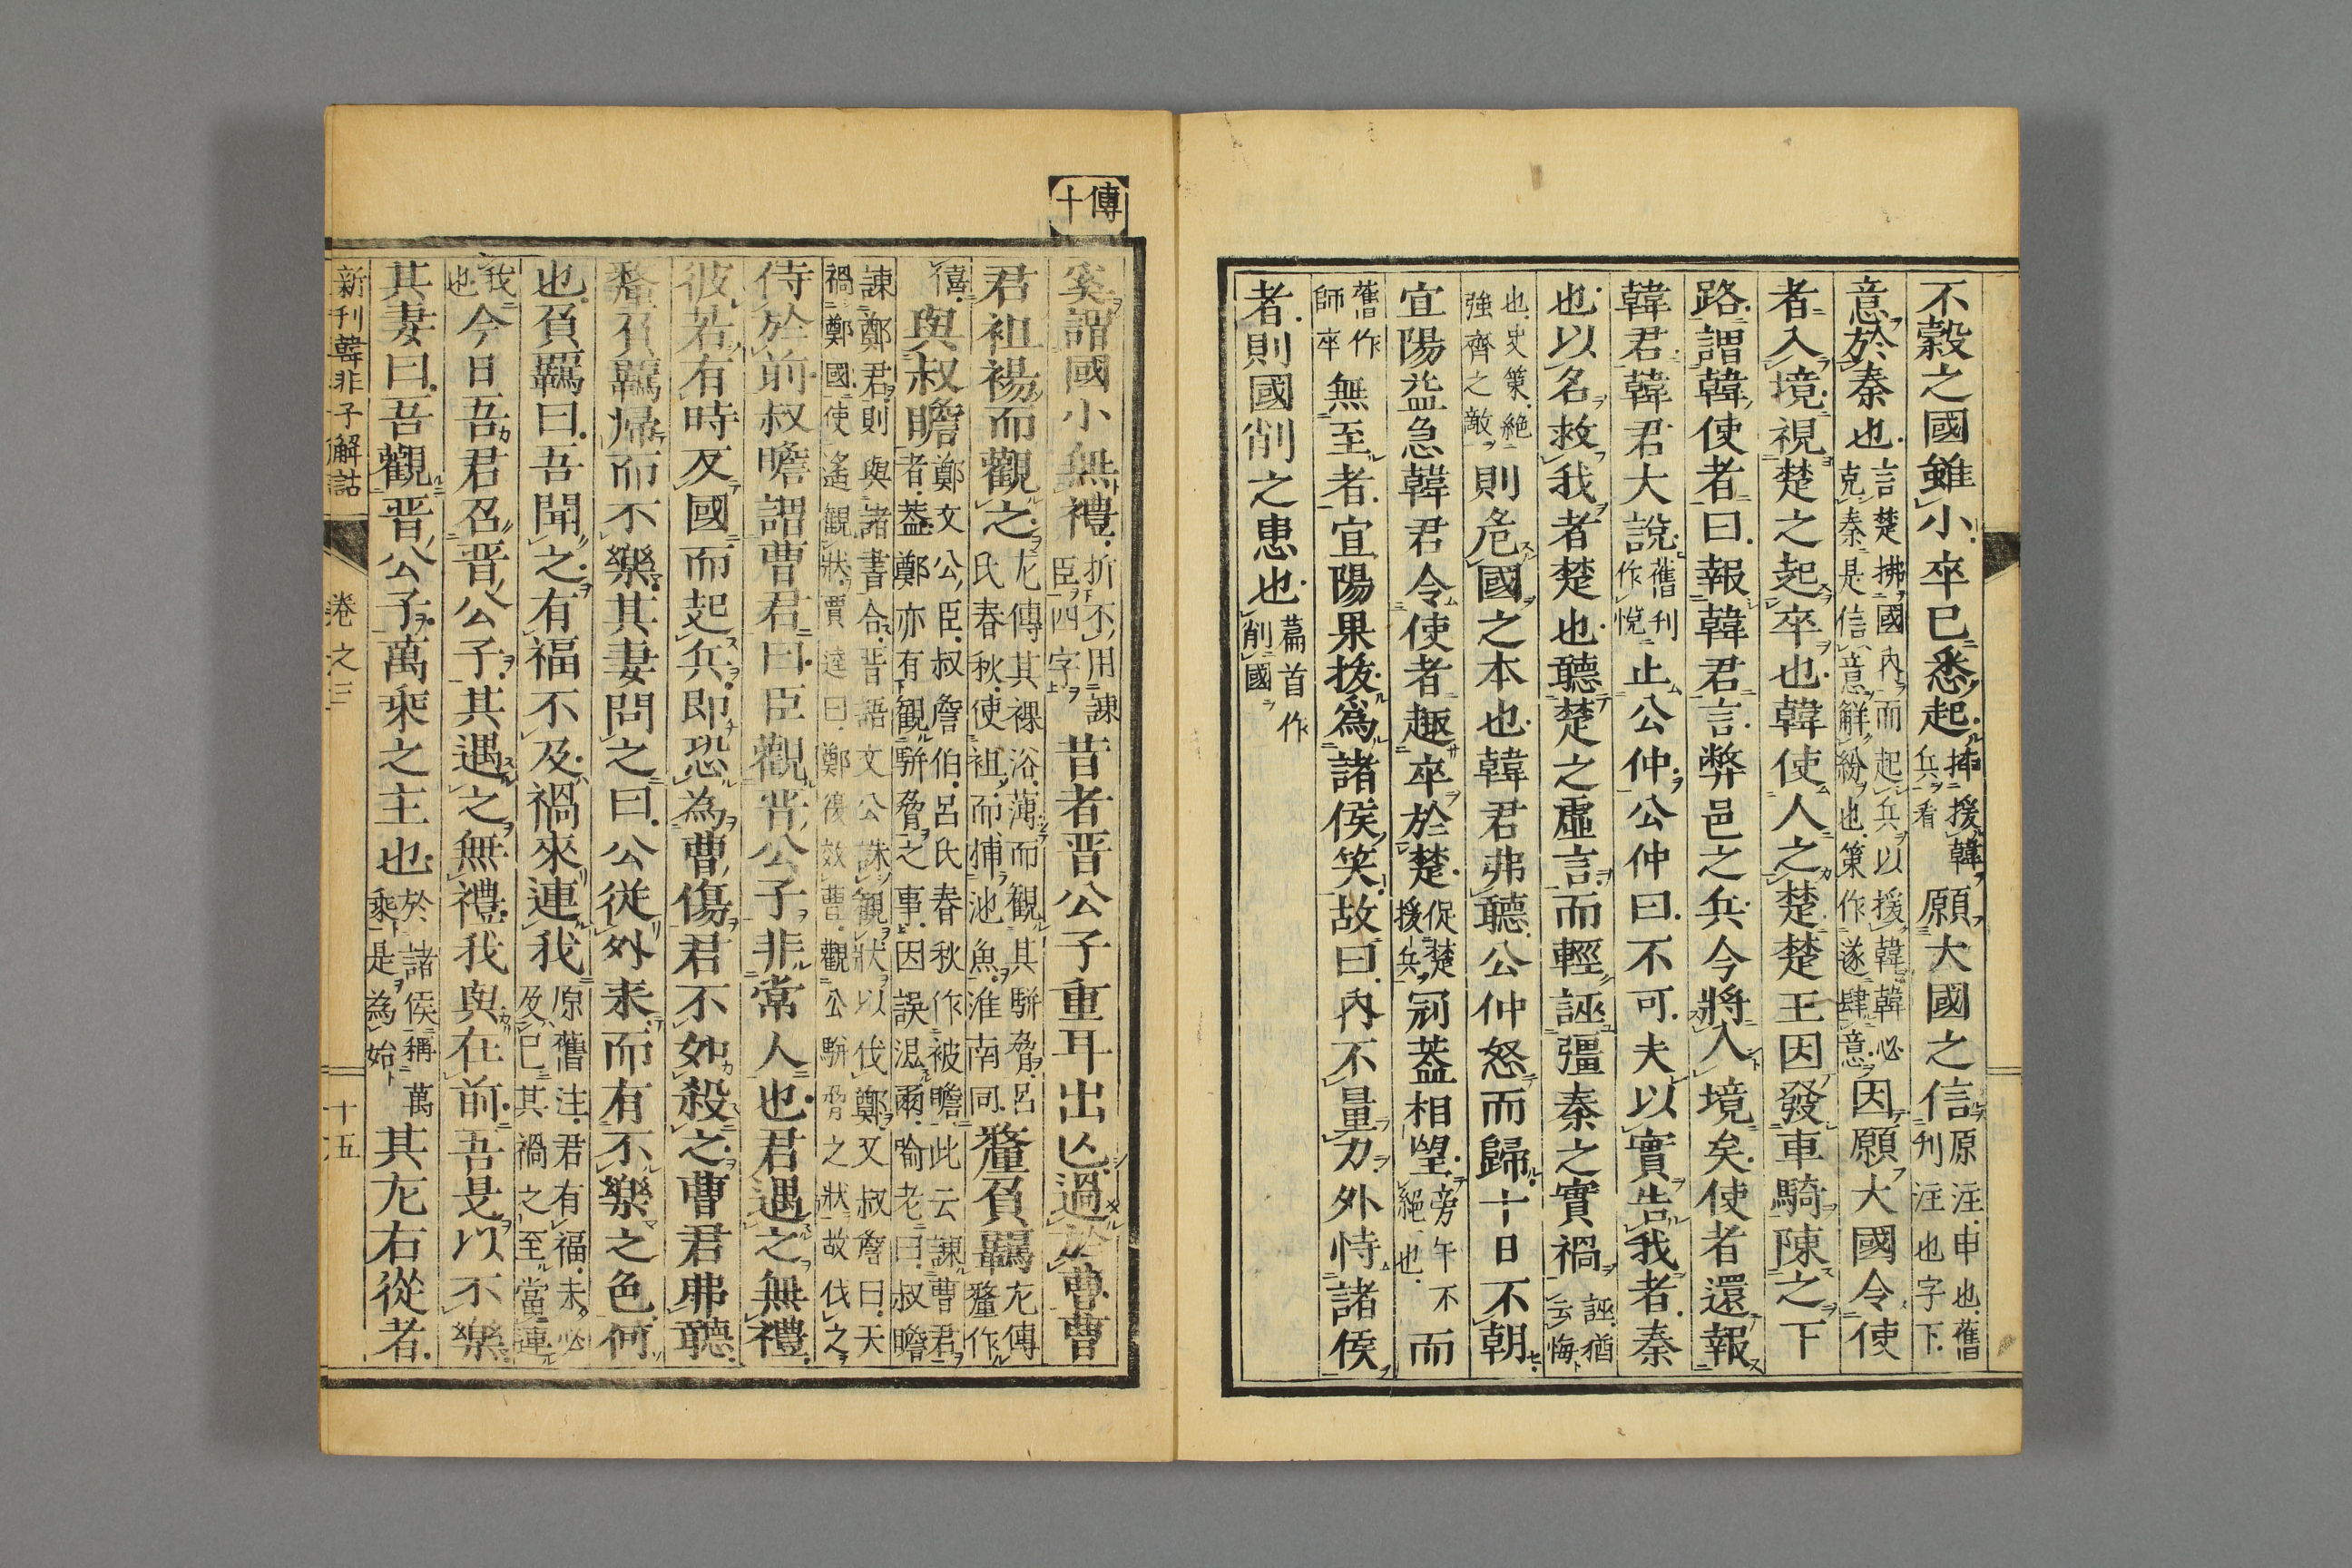 不穀之國雖小卒已悉起插援韓兵看願大國之信原注申也舊刋注也字下
意於秦也言楚拂國內而起兵以援韓韓必克秦是信意觧紛也策作遂肆意因願大國令使
者入境視楚之起卒也韓使人之楚楚王因發車騎陳之下
路謂韓使者曰報韓君言弊邑之兵今將入境矣使者還報
韓君韓君大說舊刋作悅止公仲公仲曰不可夫以實告我者秦
也以名救我者楚也聽楚之虛言而輕誣彊秦之實禍誣猶云悔
也史策絕強齊之敵則危國之本也韓君弗聽公仲怒而歸十日不朝
宜陽益急韓君令使者趣卒於楚促楚援兵冠蓋相望旁午不絕也而
舊作師卒無至者宜陽果拔爲諸侯笑故曰內不量力外恃諸侯
者則國削之患也篇首作削國
傳十
奚謂國小無禮折不用諫臣四字昔者晋公子重耳出亾過於曹曹
君袒裼而觀之左傳其裸浴薄而觀其駢脅呂氏春秋使袒而捕池魚淮南同釐負羈左傳釐作
僖與叔瞻鄭文公臣叔詹伯呂氏春秋作被瞻此云諫曹君者葢鄭亦有観駢脅之事因誤混爾喻老曰叔瞻
諫鄭君則與諸書合晋語文公誅観狀以伐鄭又叔詹曰天禍鄭國使遙觀狀賈逵曰鄭復效曹觀公駢脅之狀故伐之
侍於前叔瞻謂曹君曰臣觀晋公子非常人也君遇之無禮
彼若有時反國而起兵即恐為曹傷君不如殺之曹君弗聽
釐負羈帰而不樂其妻問之曰公從外来而有不樂之色何
也負羈曰吾聞之有福不及禍來連我原舊注君有福未必及已其禍之至當連
我也今日吾君召晋公子其遇之無禮我與在前吾是以不樂
其妻曰吾觀晋公子萬乘之主也於諸侯稱萬乘是為始其左右從者
新刊韓非子解詁 卷之三 十五